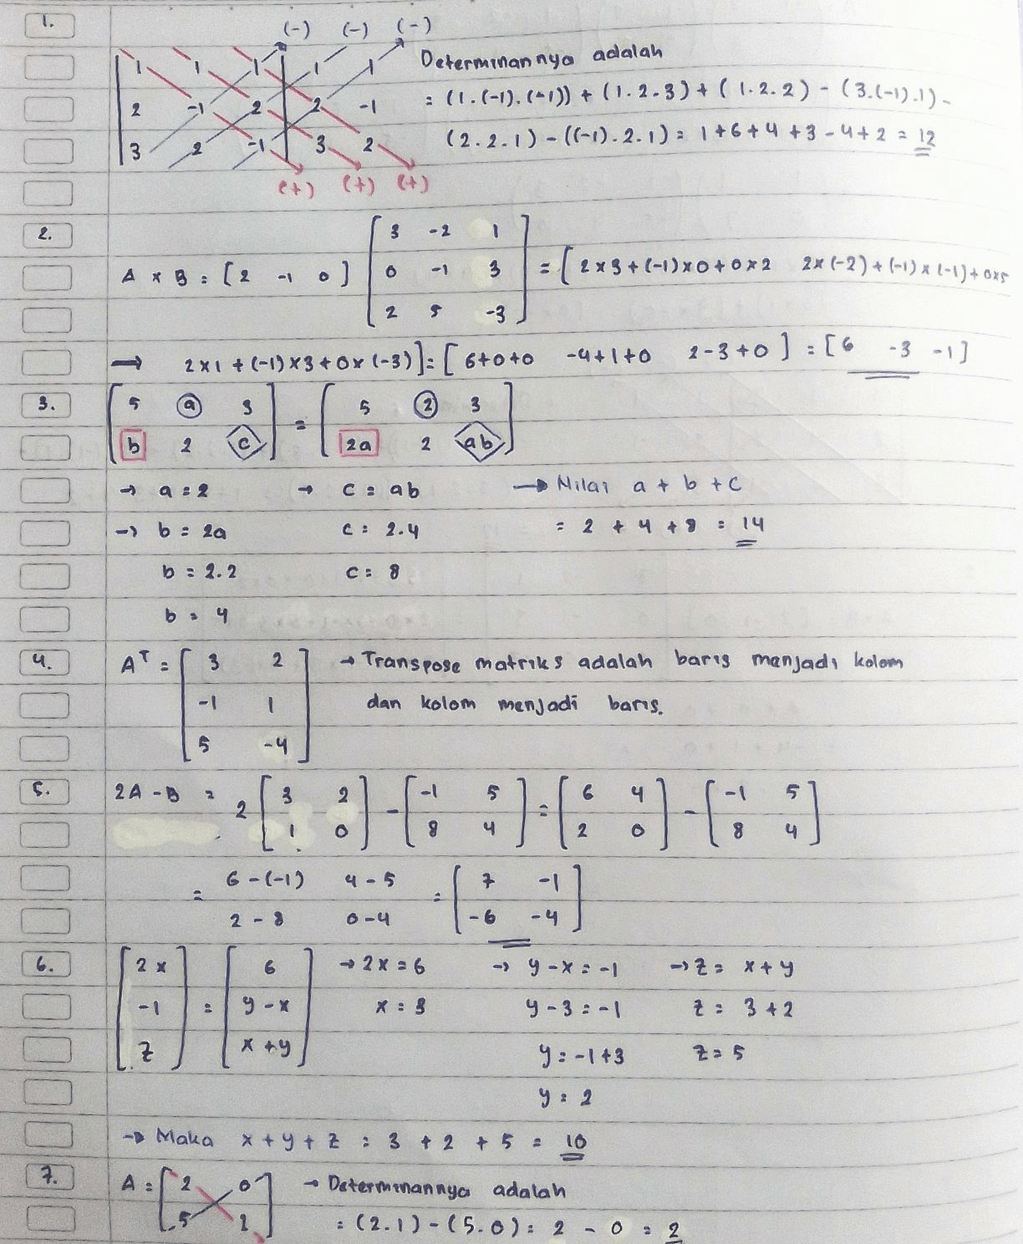 1.
(-) (-) (-)
1 1 1 1 1
2 -1 2 2 -1
3 2 -1 3 2
(+) (+) (+)
Determinannya adalah
= (1.(-1).(-1)) + (1.2.3) + (1.2.2) - (3.(-1).1) -
(2.2.1) - ((-1).2.1) = 1+6+4+3-4+2 = 12
2.
3 -2 1
A x B = [2 -1 0] 0 -1 3 = [2x3+(-1)x0+0x2 2x(-2)+(-1)x(-1)+0x5
2 5 -3
→ 2x1+(-1)x3+0x(-3)] = [6+0+0 -4+1+0 2-3+0] = [6 -3 -1]
3.
5 a 3 = 5 2 3
b 2 c 2a 2 ab
→ a = 2 → c = ab → Nilai a + b + c
→ b = 2a c = 2.4 = 2 + 4 + 8 = 14
b = 2.2 c = 8
b = 4
4.
A^T = 3 2 → Transpose matriks adalah baris menjadi kolom
-1 1 dan kolom menjadi baris.
5 -4
5.
2A - B = 2 [3 2] - [-1 5] = [6 4] - [-1 5]
1 0 8 4 2 0 8 4
= 6-(-1) 4-5 = 7 -1
2-8 0-4 -6 -4
6.
2x = 6 → 2x = 6 → y - x = -1 → z = x + y
-1 y-x x = 3 y - 3 = -1 z = 3 + 2
z x+y y = -1+3 z = 5
y = 2
→ Maka x + y + z = 3 + 2 + 5 = 10
7.
A = 2 0 → Determinannya adalah
5 1 = (2.1) - (5.0) = 2 - 0 = 2